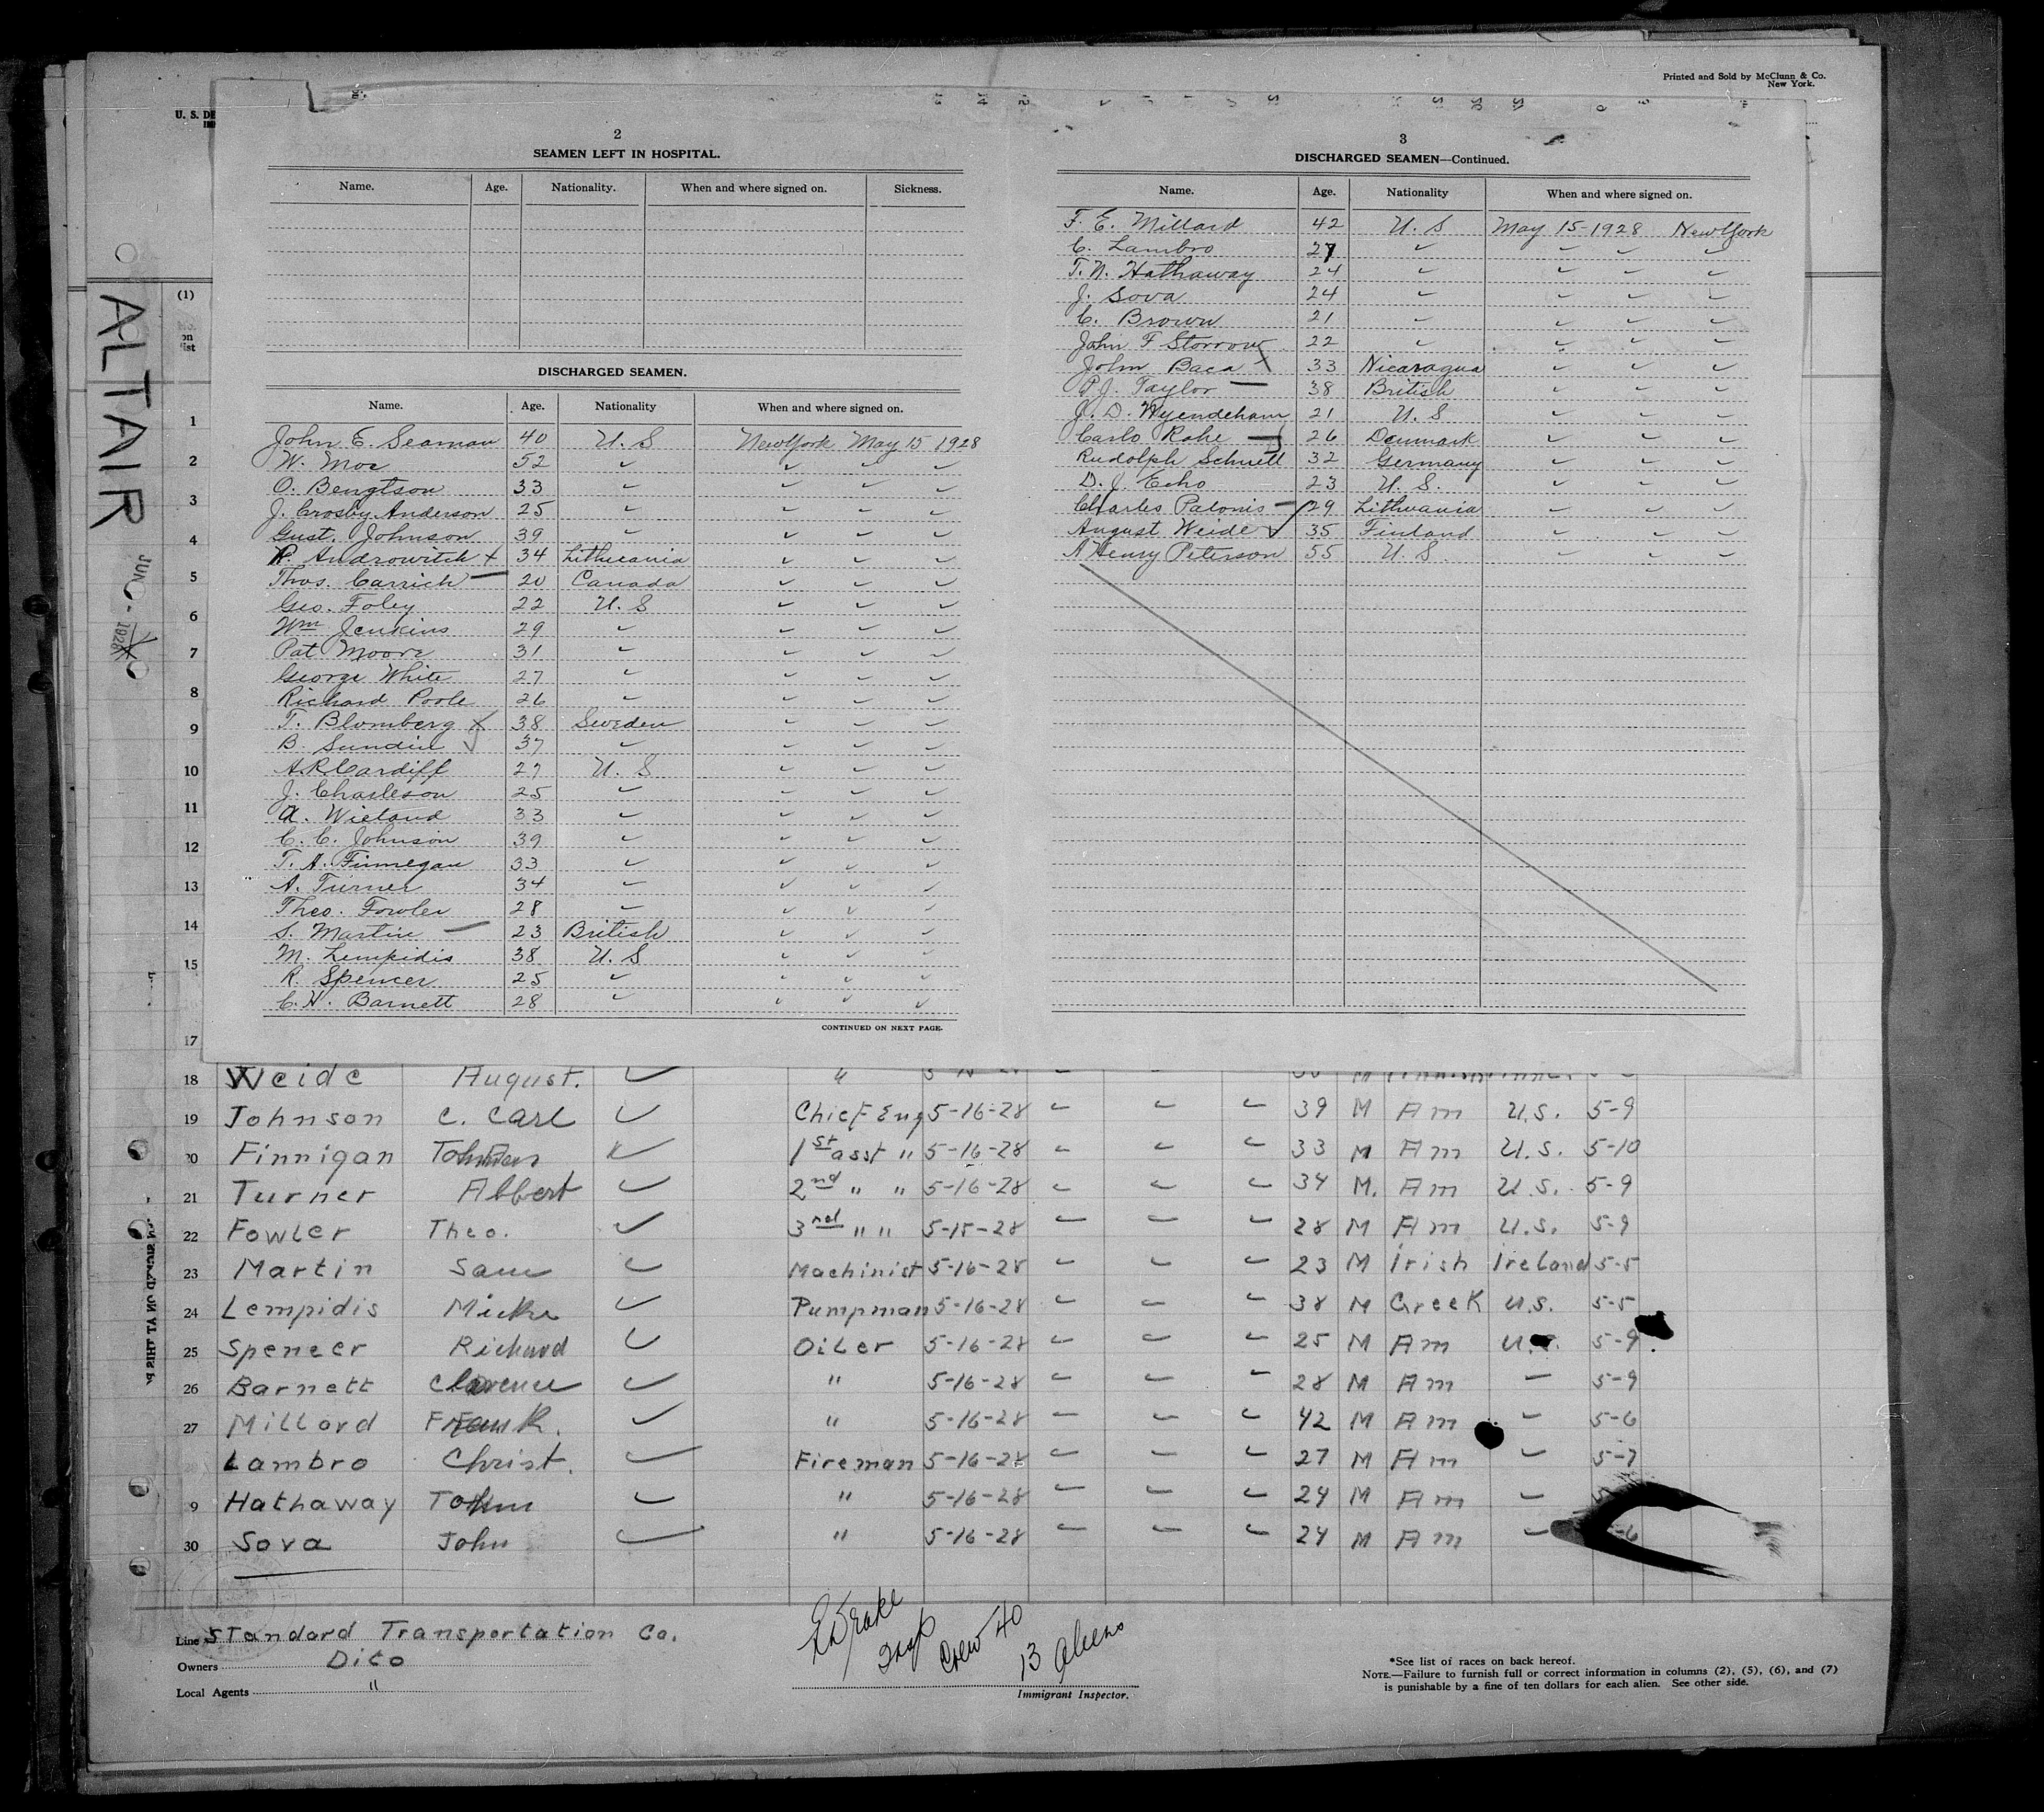 Printed and Sold by McClunn & Co.
New York.
U. S. DE
ALTAIR
JUN
1928
2
SEAMEN LEFT IN HOSPITAL.
Name. Age. Nationality. When and where signed on. Sickness.
DISCHARGED SEAMEN.
Name. Age. Nationality When and where signed on.
John E. Seaman 40 U. S New York May 15 1928
W. Moe 52 " " " "
O. Bengtson 33 " " " "
J. Crosby Anderson 25 " " " "
Gust. Johnson 39 " " " "
P. Androwitch x 34 Lithuania " " "
Thos. Carrich — 20 Canada " " "
Geo. Foley 22 U. S " " "
Wm Jenkins 29 " " " "
Pat Moore 31 " " " "
George White 27 " " " "
Richard Poole 26 " " " "
T. Blomberg x 38 Sweden " " "
B. Sundin 37 " " " "
A. R. Cardiff 27 U. S " " "
J. Charleson 25 " " " "
A. Wieland 33 " " " "
C. C. Johnson 39 " " " "
T. A. Finnegan 33 " " " "
A. Turner 34 " " " "
Theo. Fowler 28 " " " "
S. Martin — 23 British " " "
M. Lempidis 38 U. S " " "
R. Spencer 25 " " " "
C. H. Barnett 28 " " " "
CONTINUED ON NEXT PAGE.
3
DISCHARGED SEAMEN—Continued.
Name. Age. Nationality When and where signed on.
F. E. Millard 42 U. S May 15-1928 New York
C. Lambro 27 " " " "
T. N. Hathaway 24 " " " "
J. Sova 24 " " " "
C. Brown 21 " " " "
John F Storrow 22 " " " "
John Baca x 33 Nicaragua " " "
P. J. Taylor — 38 British " " "
J. D. Wyendeham 21 U. S " " "
Carlo Rohe — 26 Denmark " " "
Rudolph Schnell 32 Germany " " "
D. J. Echo 23 U. S. " " "
Charles Palonis — 29 Lithuania " " "
August Weide 35 Finland " " "
A Henry Peterson 55 U. S. " " "
(1)
on
list
1
2
3
4
5
6
7
8
9
10
11
12
13
14
15
17
18 Weide August. "
19 Johnson C. Carl Chief Eng 5-16-28 39 M Am U.S. 5-9
20 Finnigan 1st asst " 5-16-28 33 M Am U.S. 5-10
21 Turner Albert 2nd " " 5-16-28 34 M. Am U.S. 5-9
22 Fowler Theo. 3rd " " 5-15-28 28 M Am U.S. 5-9
23 Martin Sam Machinist 5-16-28 23 M Irish Ireland 5-5
24 Lempidis Mike Pumpman 5-16-28 38 M Greek U.S. 5-5
25 Spencer Richard Oiler 5-16-28 25 M Am 5-9
26 Barnett Clarence " 5-16-28 28 M Am " 5-9
27 Millard Frank. " 5-16-28 42 M Am " 5-6
Lambro Christ. Fireman 5-16-28 27 M Am " 5-7
9 Hathaway " 5-16-28 24 M Am "
30 Sova John " 5-16-28 24 M Am "
Line Standard Transportation Co.
Owners Dito
Local Agents "
Drake
Insp
Crew 40
13 Aliens
Immigrant Inspector.
*See list of races on back hereof.
NOTE.—Failure to furnish full or correct information in columns (2), (5), (6), and (7)
is punishable by a fine of ten dollars for each alien. See other side.